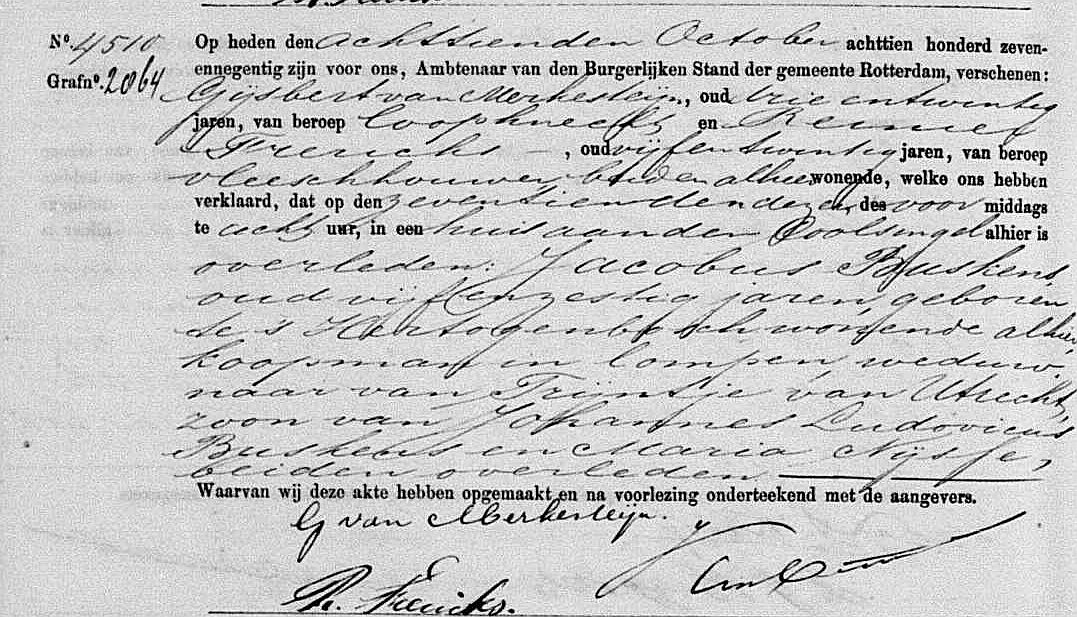 No. 4510 Op heden den achttienden October achttien honderd zeven-
Grafno. 2064 ennegentig zijn voor ons, Ambtenaar van den Burgerlijken Stand der gemeente Rotterdam, verschenen:
Gijsbert van Merkesteijn, oud drie entwintig
jaren, van beroep loopknecht en Remmer
Frerichs —, oud vijfentwintig jaren, van beroep
vleeschhouwer beiden alhier wonende, welke ons hebben
verklaard, dat op den zeventienden dezer, des voor middags
te acht uur, in een huis aan den Coolsingel alhier is
overleden: Jacobus Buskens,
oud vijf en zestig jaren, geboren
te 's Hertogenbosch wonende alhier,
koopman in lompen, weduw-
naar van Trijntje van Utrecht,
zoon van Johannes Ludovicus
Buskens en Maria Nijsje,
beiden overleden
Waarvan wij deze akte hebben opgemaakt en na voorlezing onderteekend met de aangevers.
G van Merkesteijn.
R. Frerichs.